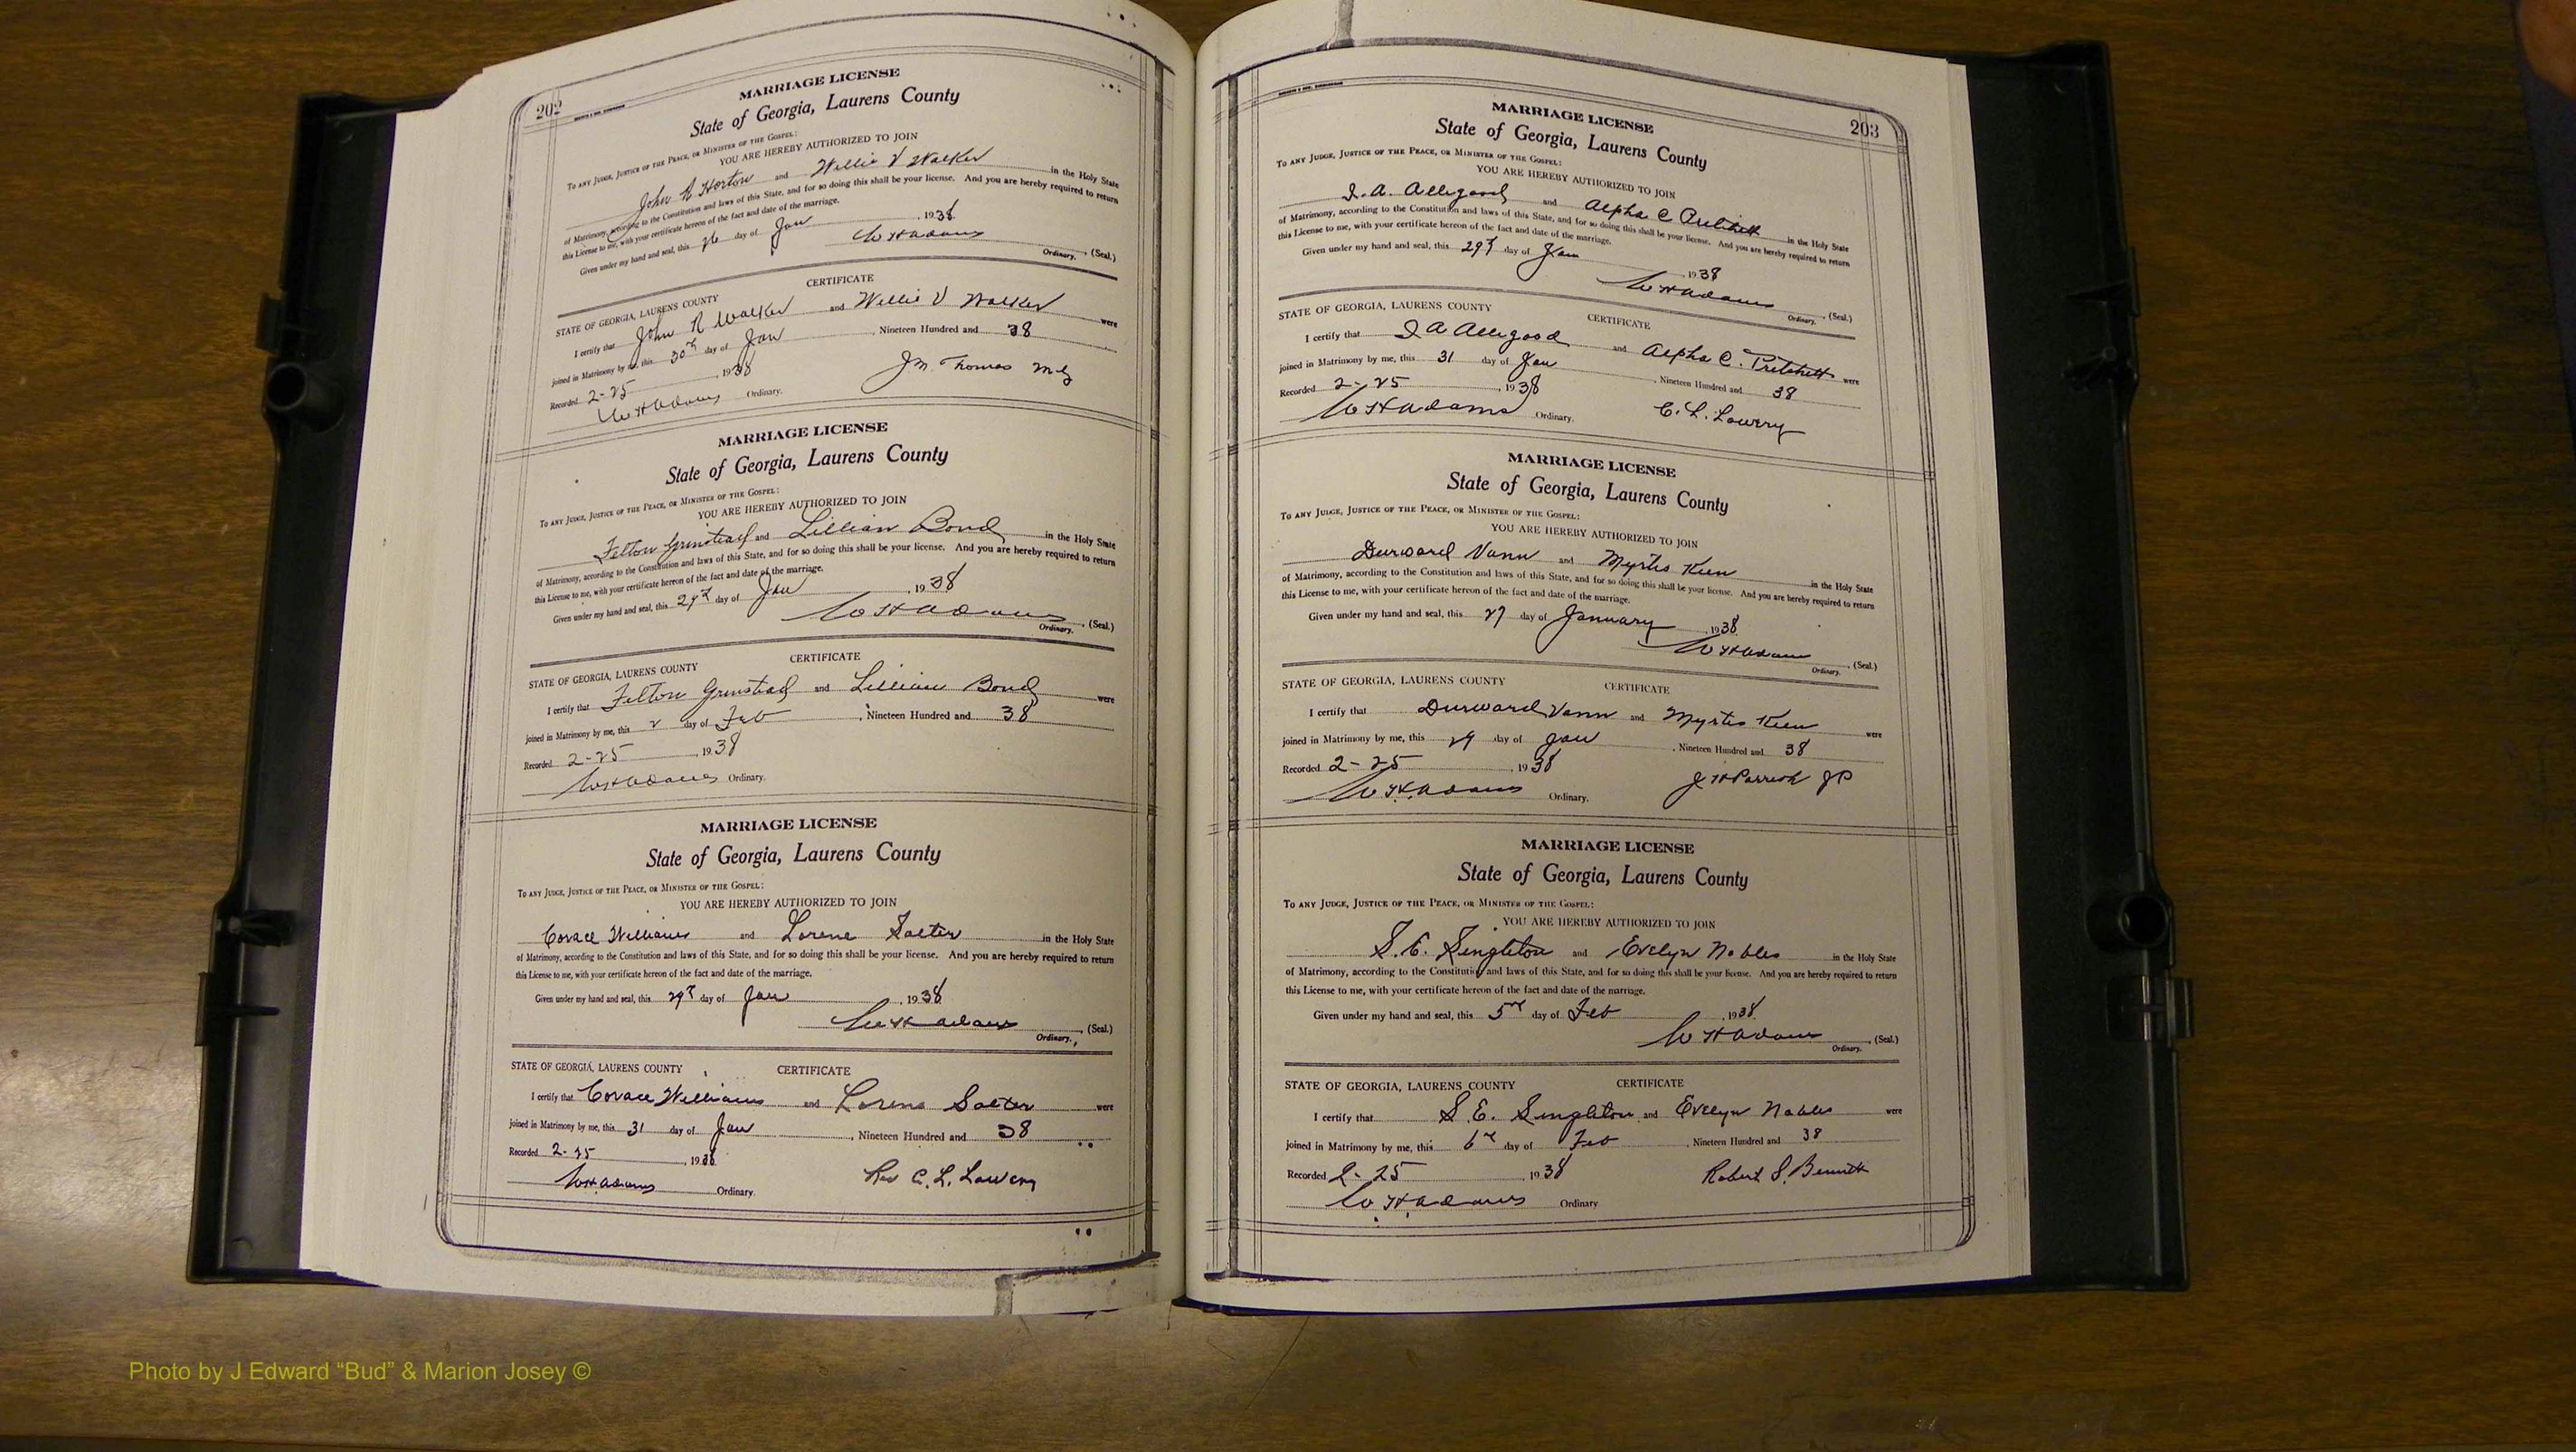 202
MARRIAGE LICENSE
State of Georgia, Laurens County
To any Judge, Justice of the Peace, or Minister of the Gospel:
YOU ARE HEREBY AUTHORIZED TO JOIN
John R Horton and Willie V Walker in the Holy State
of Matrimony, according to the Constitution and laws of this State, and for so doing this shall be your license. And you are hereby required to return
this License to me, with your certificate hereon of the fact and date of the marriage.
Given under my hand and seal, this 26 day of Jan 1938
W H Adams (Seal.)
Ordinary.
CERTIFICATE
STATE OF GEORGIA, LAURENS COUNTY
I certify that John R Walker and Willie V Walker were
joined in Matrimony by me, this 30th day of Jan, Nineteen Hundred and 38
Recorded 2-25 1938
J M Thomas MG
W H Adams Ordinary.
MARRIAGE LICENSE
State of Georgia, Laurens County
To any Judge, Justice of the Peace, or Minister of the Gospel:
YOU ARE HEREBY AUTHORIZED TO JOIN
Felton Grinstead and Lillian Bond in the Holy State
of Matrimony, according to the Constitution and laws of this State, and for so doing this shall be your license. And you are hereby required to return
this License to me, with your certificate hereon of the fact and date of the marriage.
Given under my hand and seal, this 29th day of Jan, 1938
W H Adams (Seal.)
Ordinary.
CERTIFICATE
STATE OF GEORGIA, LAURENS COUNTY
I certify that Felton Grinstead and Lillian Bond were
joined in Matrimony by me, this 2 day of Feb, Nineteen Hundred and 38
Recorded 2-25 1938
W H Adams Ordinary.
MARRIAGE LICENSE
State of Georgia, Laurens County
To any Judge, Justice of the Peace, or Minister of the Gospel:
YOU ARE HEREBY AUTHORIZED TO JOIN
Williams and Lorene Salter in the Holy State
of Matrimony, according to the Constitution and laws of this State, and for so doing this shall be your license. And you are hereby required to return
this License to me, with your certificate hereon of the fact and date of the marriage.
Given under my hand and seal, this 29th day of Jan, 1938
W H Adams (Seal.)
Ordinary.
STATE OF GEORGIA, LAURENS COUNTY CERTIFICATE
I certify that Williams and Lorene Salter were
joined in Matrimony by me, this 31 day of Jan, Nineteen Hundred and 38
Recorded 2-25, 1938
Rev C. L. Lowery
W H Adams Ordinary.
203
MARRIAGE LICENSE
State of Georgia, Laurens County
To any Judge, Justice of the Peace, or Minister of the Gospel:
YOU ARE HEREBY AUTHORIZED TO JOIN
I. A. Alligood and Alpha C Pritchett in the Holy State
of Matrimony, according to the Constitution and laws of this State, and for so doing this shall be your license. And you are hereby required to return
this License to me, with your certificate hereon of the fact and date of the marriage.
Given under my hand and seal, this 29th day of Jan, 1938
W H Adams (Seal.)
Ordinary.
STATE OF GEORGIA, LAURENS COUNTY CERTIFICATE
I certify that I A Alligood and Alpha C. Pritchett were
joined in Matrimony by me, this 31 day of Jan, Nineteen Hundred and 38
Recorded 2-25, 1938
W H Adams Ordinary. C. L. Lowery
MARRIAGE LICENSE
State of Georgia, Laurens County
To any Judge, Justice of the Peace, or Minister of the Gospel:
YOU ARE HEREBY AUTHORIZED TO JOIN
Durward Vann and Myrtis Keen in the Holy State
of Matrimony, according to the Constitution and laws of this State, and for so doing this shall be your license. And you are hereby required to return
this License to me, with your certificate hereon of the fact and date of the marriage.
Given under my hand and seal, this 27 day of January, 1938
W H Adams (Seal.)
Ordinary.
STATE OF GEORGIA, LAURENS COUNTY CERTIFICATE
I certify that Durward Vann and Myrtis Keen were
joined in Matrimony by me, this 29 day of Jan, Nineteen Hundred and 38
Recorded 2-25, 1938
W H Adams Ordinary. J H Parrish JP
MARRIAGE LICENSE
State of Georgia, Laurens County
To any Judge, Justice of the Peace, or Minister of the Gospel:
YOU ARE HEREBY AUTHORIZED TO JOIN
S. E. Singleton and Evelyn Nobles in the Holy State
of Matrimony, according to the Constitution and laws of this State, and for so doing this shall be your license. And you are hereby required to return
this License to me, with your certificate hereon of the fact and date of the marriage.
Given under my hand and seal, this 5th day of Feb, 1938
W H Adams (Seal.)
Ordinary.
STATE OF GEORGIA, LAURENS COUNTY CERTIFICATE
I certify that S. E. Singleton and Evelyn Nobles were
joined in Matrimony by me, this 6th day of Feb, Nineteen Hundred and 38
Recorded 2-25, 1938 Robert S. Bennett
W H Adams Ordinary
Photo by J Edward “Bud” & Marion Josey ©